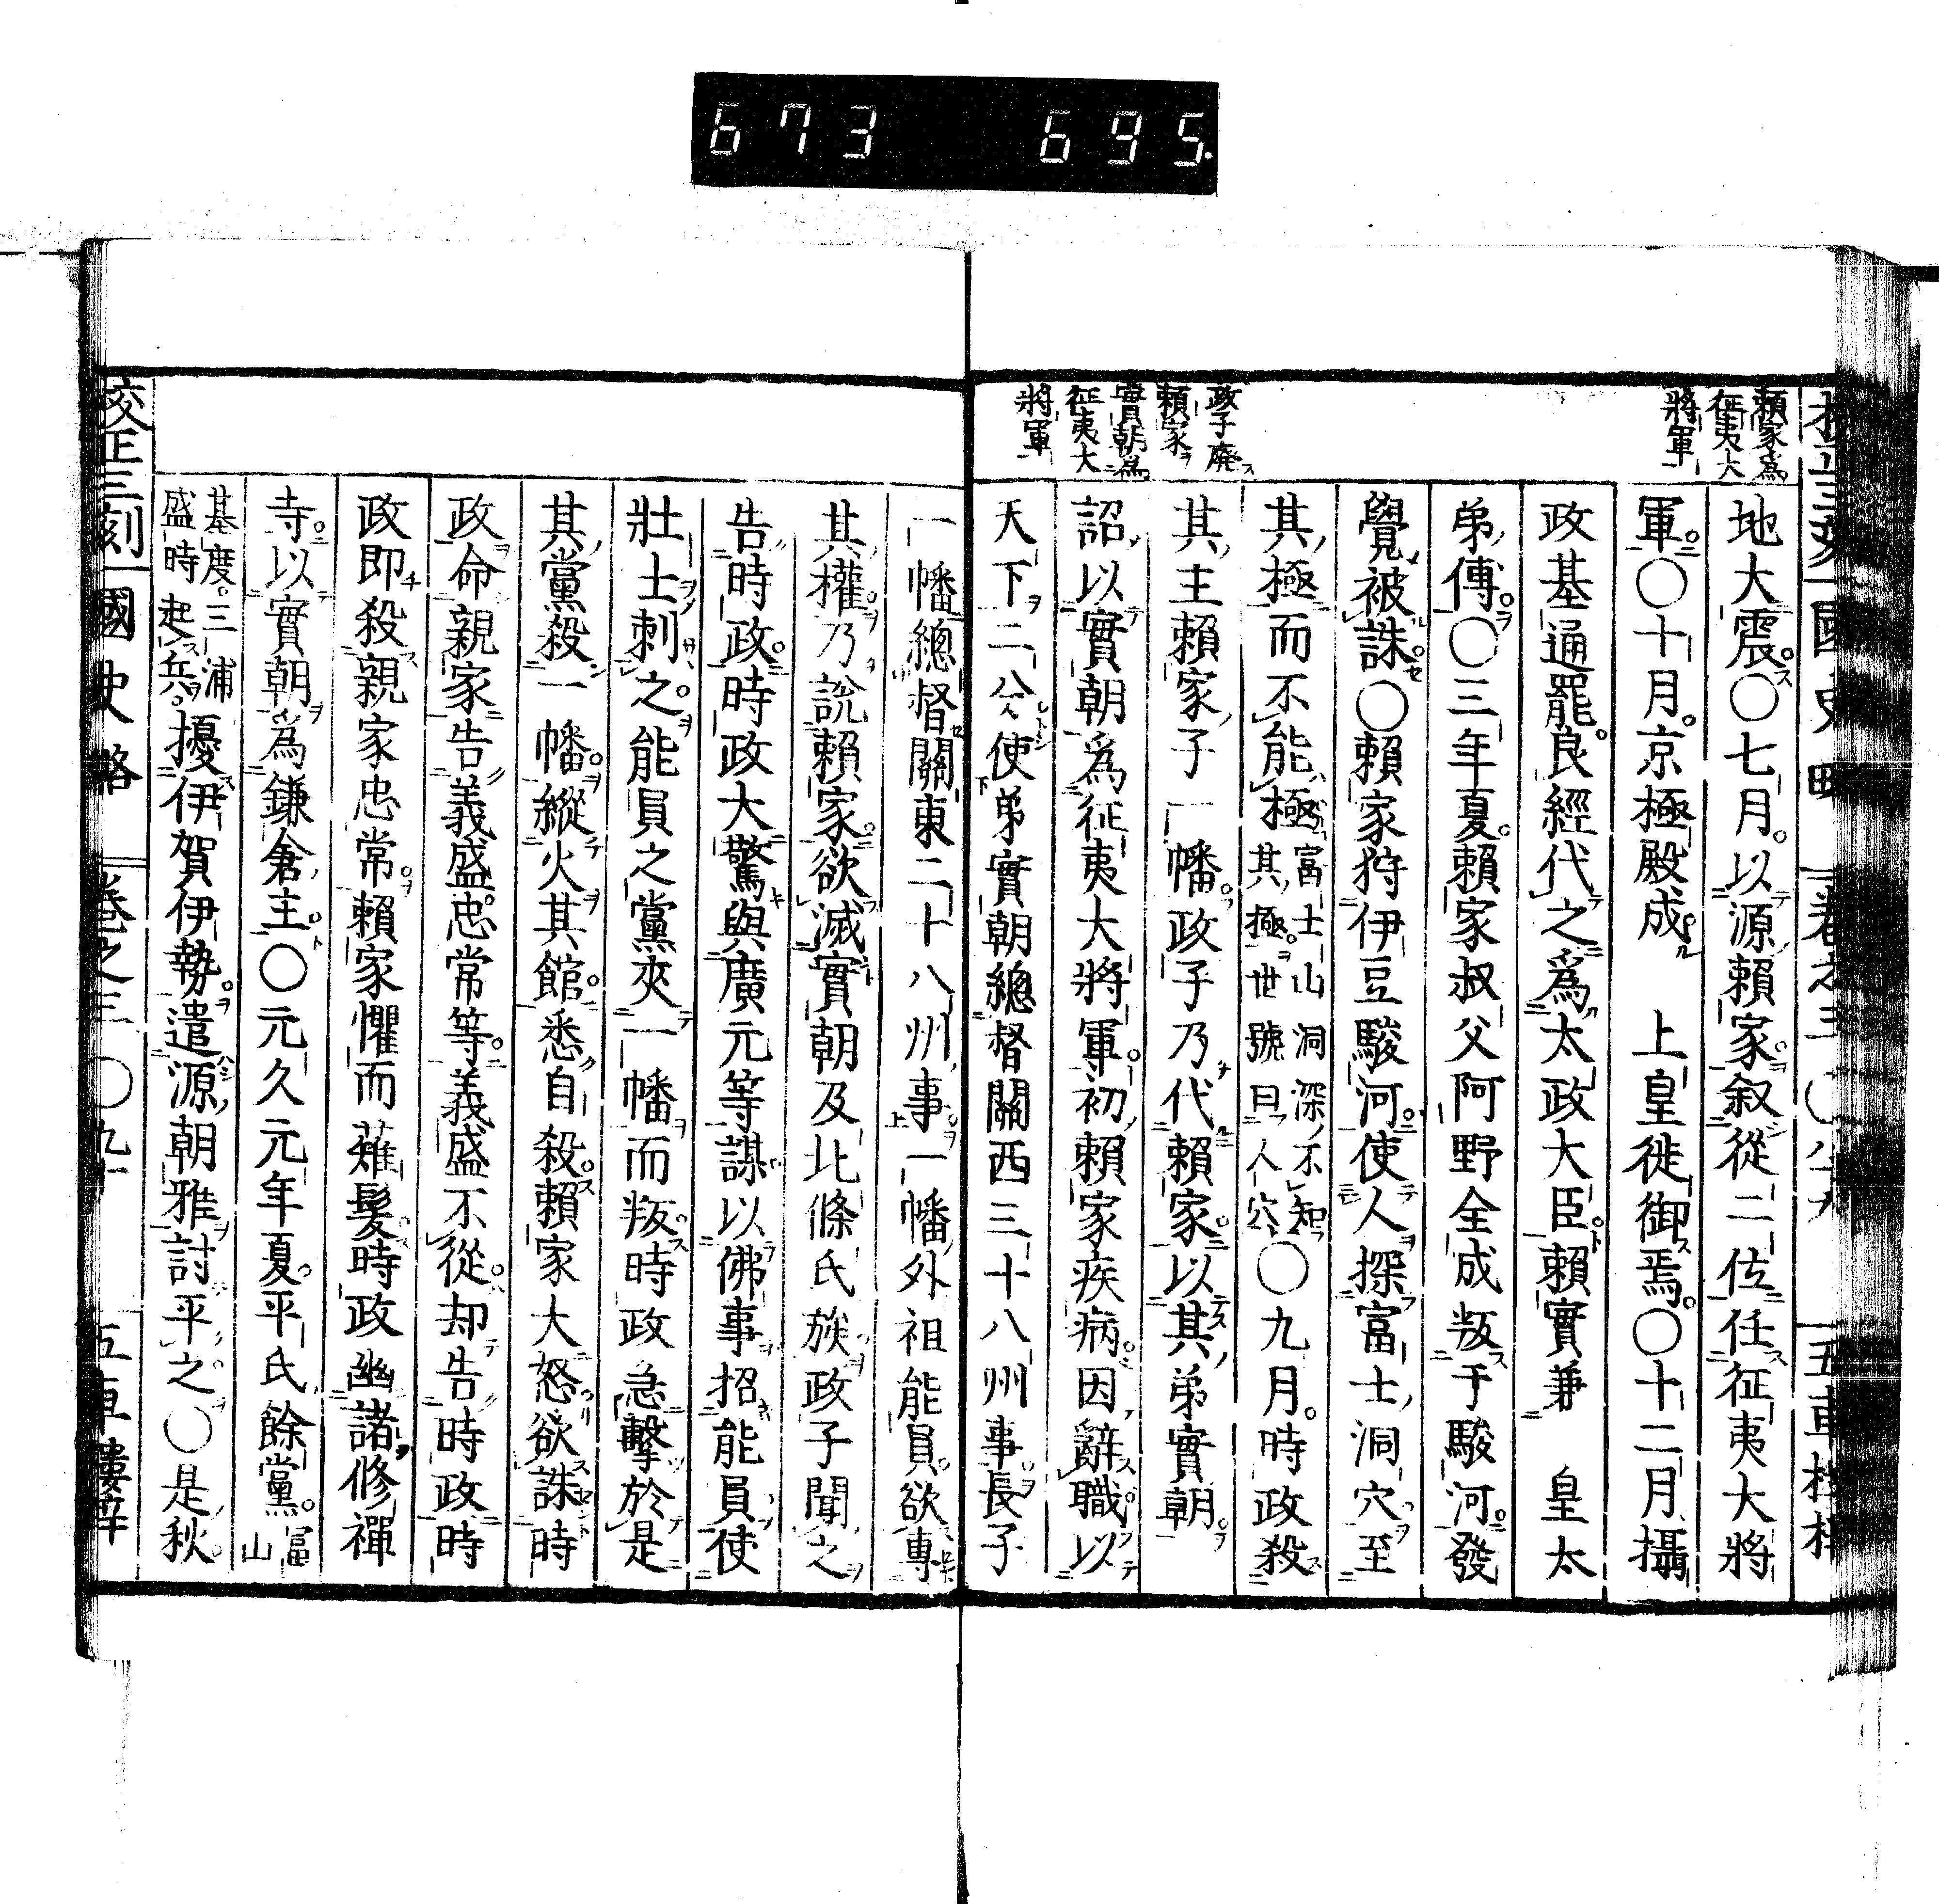 673 695.
賴家爲
征夷大
將軍
地大震○七月以源賴家叙從二位任征夷大將
軍○十月京極殿成　上皇徙御焉○十二月攝
政基通罷良經代之爲太政大臣賴實兼　皇太
弟傳○三年夏賴家叔父阿野全成叛于駿河發
覺被誅○賴家狩伊豆駿河使人探富士洞穴至
政子廢
賴家
實朝爲
征夷大
將軍
其極而不能極富士山洞深不知其極世號曰人穴○九月時政殺
其主賴家子一幡政子乃代賴家以其弟實朝
詔以實朝爲征夷大將軍初賴家疾病因辭職以
天下二分使弟實朝總督關西三十八州事長子
一幡總督關東二十八州事一幡外祖能員欲專
其權乃說賴家欲滅實朝及北條氏族政子聞之
告時政時政大驚與廣元等謀以佛事招能員使
壯士刺之能員之黨夾一幡而叛時政急擊於是
其黨殺一幡縱火其館悉自殺賴家大怒欲誅時
政命親家告義盛忠常等義盛不從却告時政時
政即殺親家忠常賴家懼而薙髮時政幽諸修禪
寺以實朝爲鎌倉主○元久元年夏平氏餘黨富山
基度三浦盛時起兵擾伊賀伊勢遣源朝雅討平之○是秋
校正三刻國史略　卷之三　○九十　五車樓梓